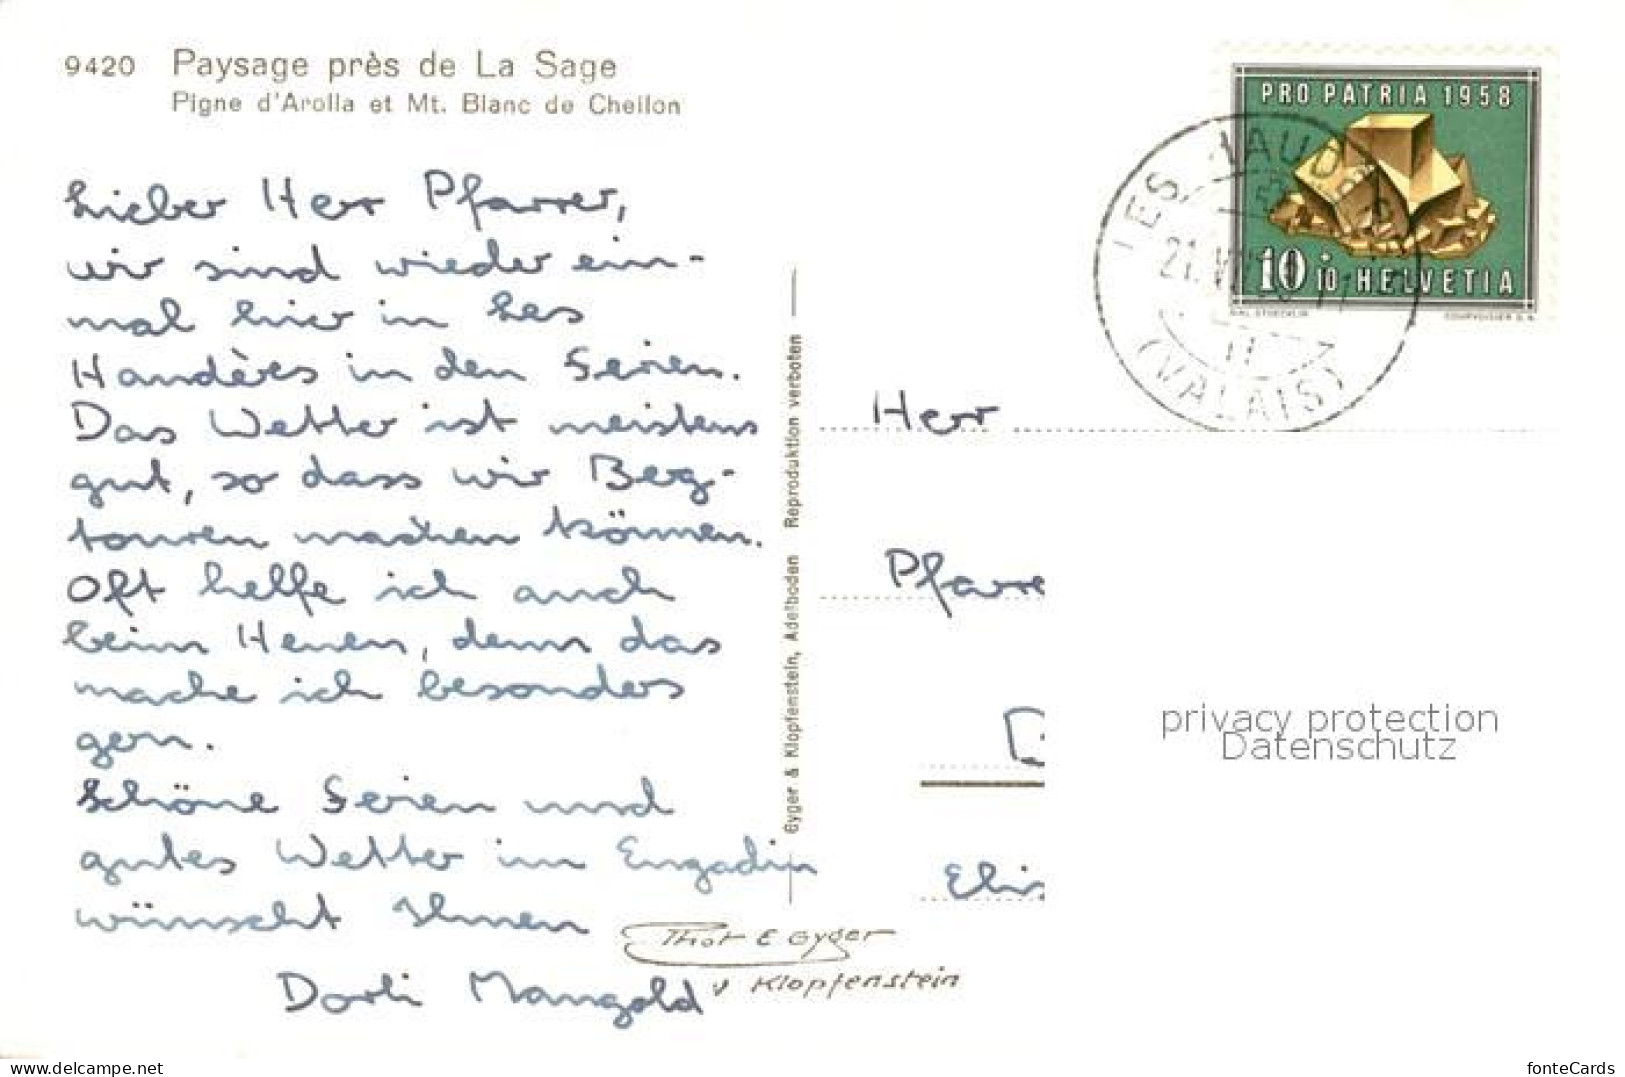 9420 Paysage près de La Sage
Pigne d'Arolla et Mt. Blanc de Cheilon
Lieber Herr Pfarrer,
wir sind wieder ein-
mal hier in Les
Haudères in den Ferien.
Das Wetter ist meistens
gut, so dass wir Berg-
touren machen können.
Oft helfe ich auch
beim Heuen, denn das
mache ich besonders
gern.
Schöne Ferien und
gutes Wetter im Engadin
wünscht Ihnen
Dorli Mangold
Gyger & Klopfenstein, Adelboden Reproduktion verboten
Phot E Gyger
v Klopfenstein
PRO PATRIA 1958
10 + 10 HELVETIA
COURVOISIER S.A.
LES HAUD
21. VII
11
(VALAIS)
Herr
Pfarre
Elis
privacy protection
Datenschutz
the-bookmarket.com
fonteCards